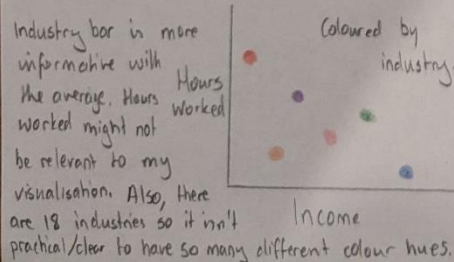 Industry bar is more
informative with
the average. Hours
worked might not
be relevant to my
visualisation. Also, there
are 18 industries so it isn't
practical/clear to have so many different colour hues.
Hours
Worked
Coloured by
industry
Income